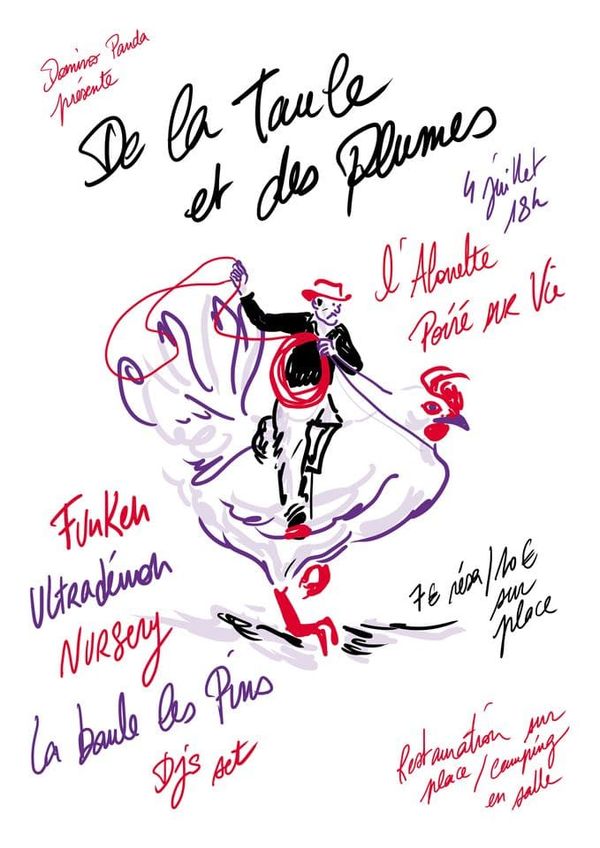 Domino Panda
présente
De la Taule
et des Plumes
4 juillet
18h
l'Alouette
Poiré sur Vie
Funken
Ultradémon
Nursery
La baule les Pins
Djs set
7€ résa/10€
sur
place
Restauration sur
place/camping
en salle